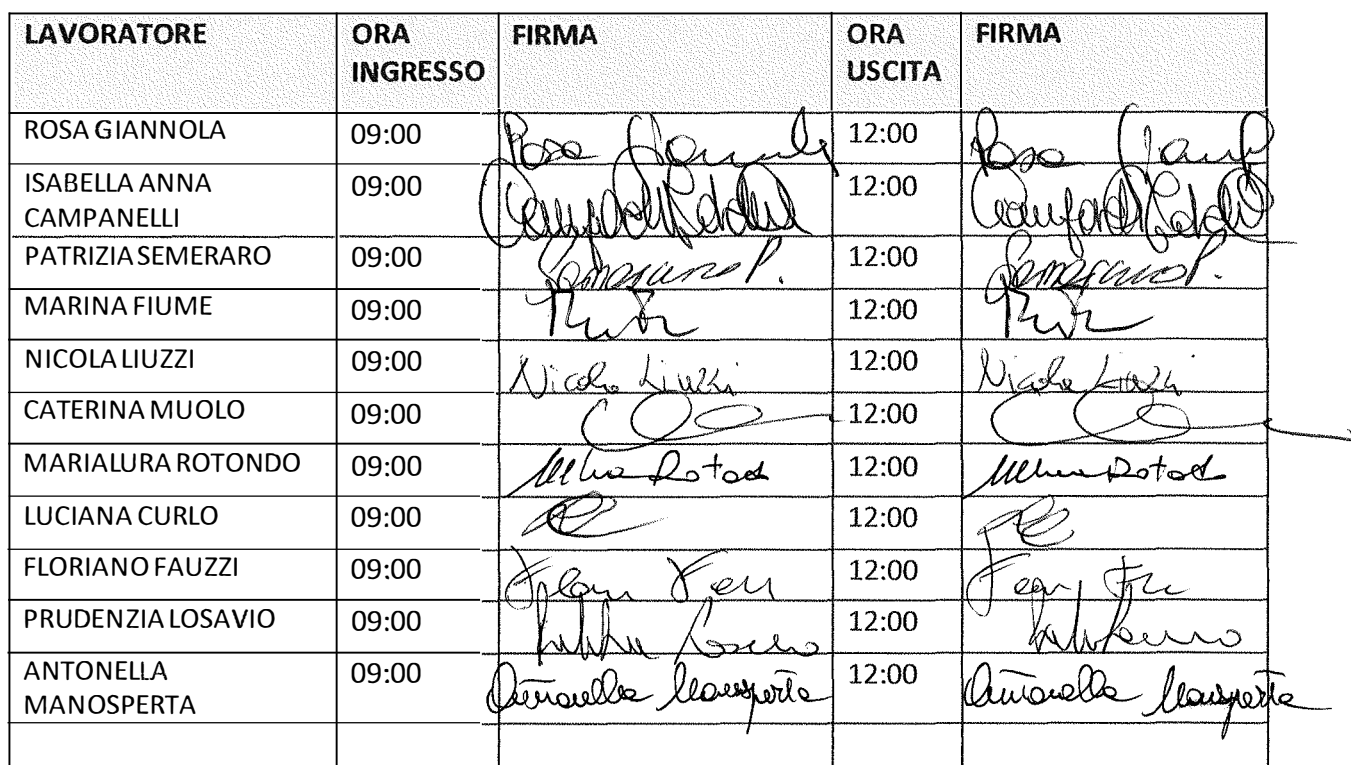 LAVORATORE ORA INGRESSO FIRMA ORA USCITA FIRMA
ROSA GIANNOLA 09:00 Rosa 12:00 Rosa
ISABELLA ANNA CAMPANELLI 09:00 12:00
PATRIZIA SEMERARO 09:00 Semeraro P. 12:00 Semeraro P.
MARINA FIUME 09:00 12:00
NICOLA LIUZZI 09:00 Nicola Liuzzi 12:00 Nicola Liuzzi
CATERINA MUOLO 09:00 12:00
MARIALURA ROTONDO 09:00 12:00
LUCIANA CURLO 09:00 12:00
FLORIANO FAUZZI 09:00 12:00
PRUDENZIA LOSAVIO 09:00 12:00
ANTONELLA MANOSPERTA 09:00 Antonella Manosperta 12:00 Antonella Manosperta